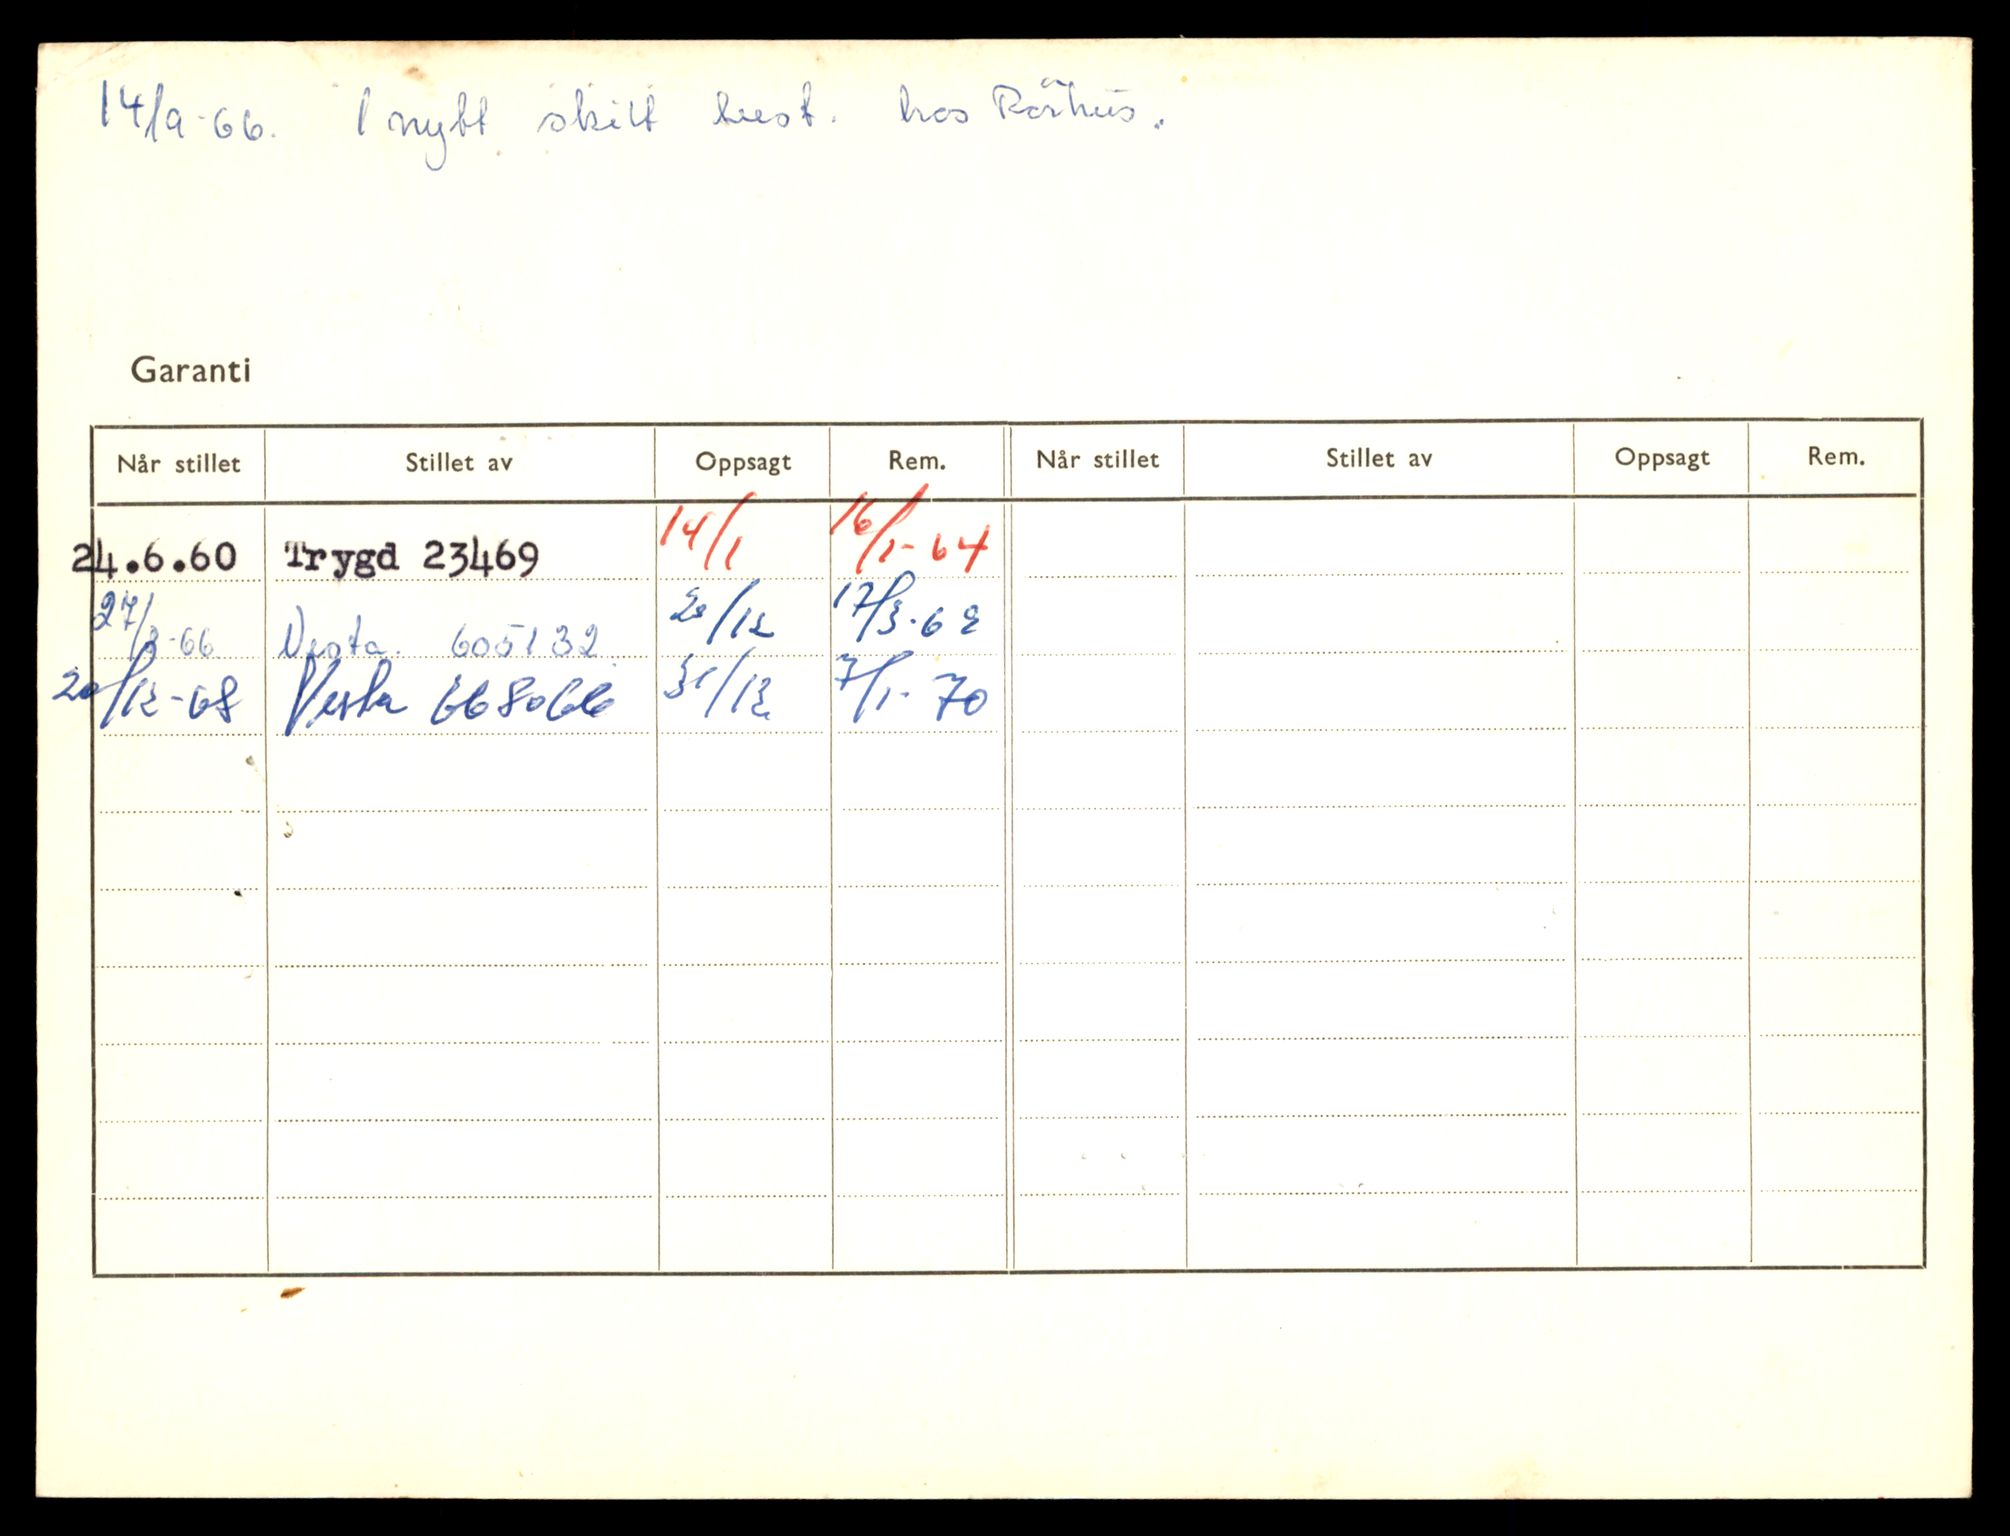 14/9-66. 1 nytt skilt best. hos Rörhus.
Garanti
Når stillet Stillet av Oppsagt Rem. Når stillet Stillet av Oppsagt Rem.
24.6.60 Trygd 23469 14/1 16/1-64
27/3-66 Vesta. 605132 20/12 17/3-68
20/12-68 Vesta 668066 31/12 7/1-70